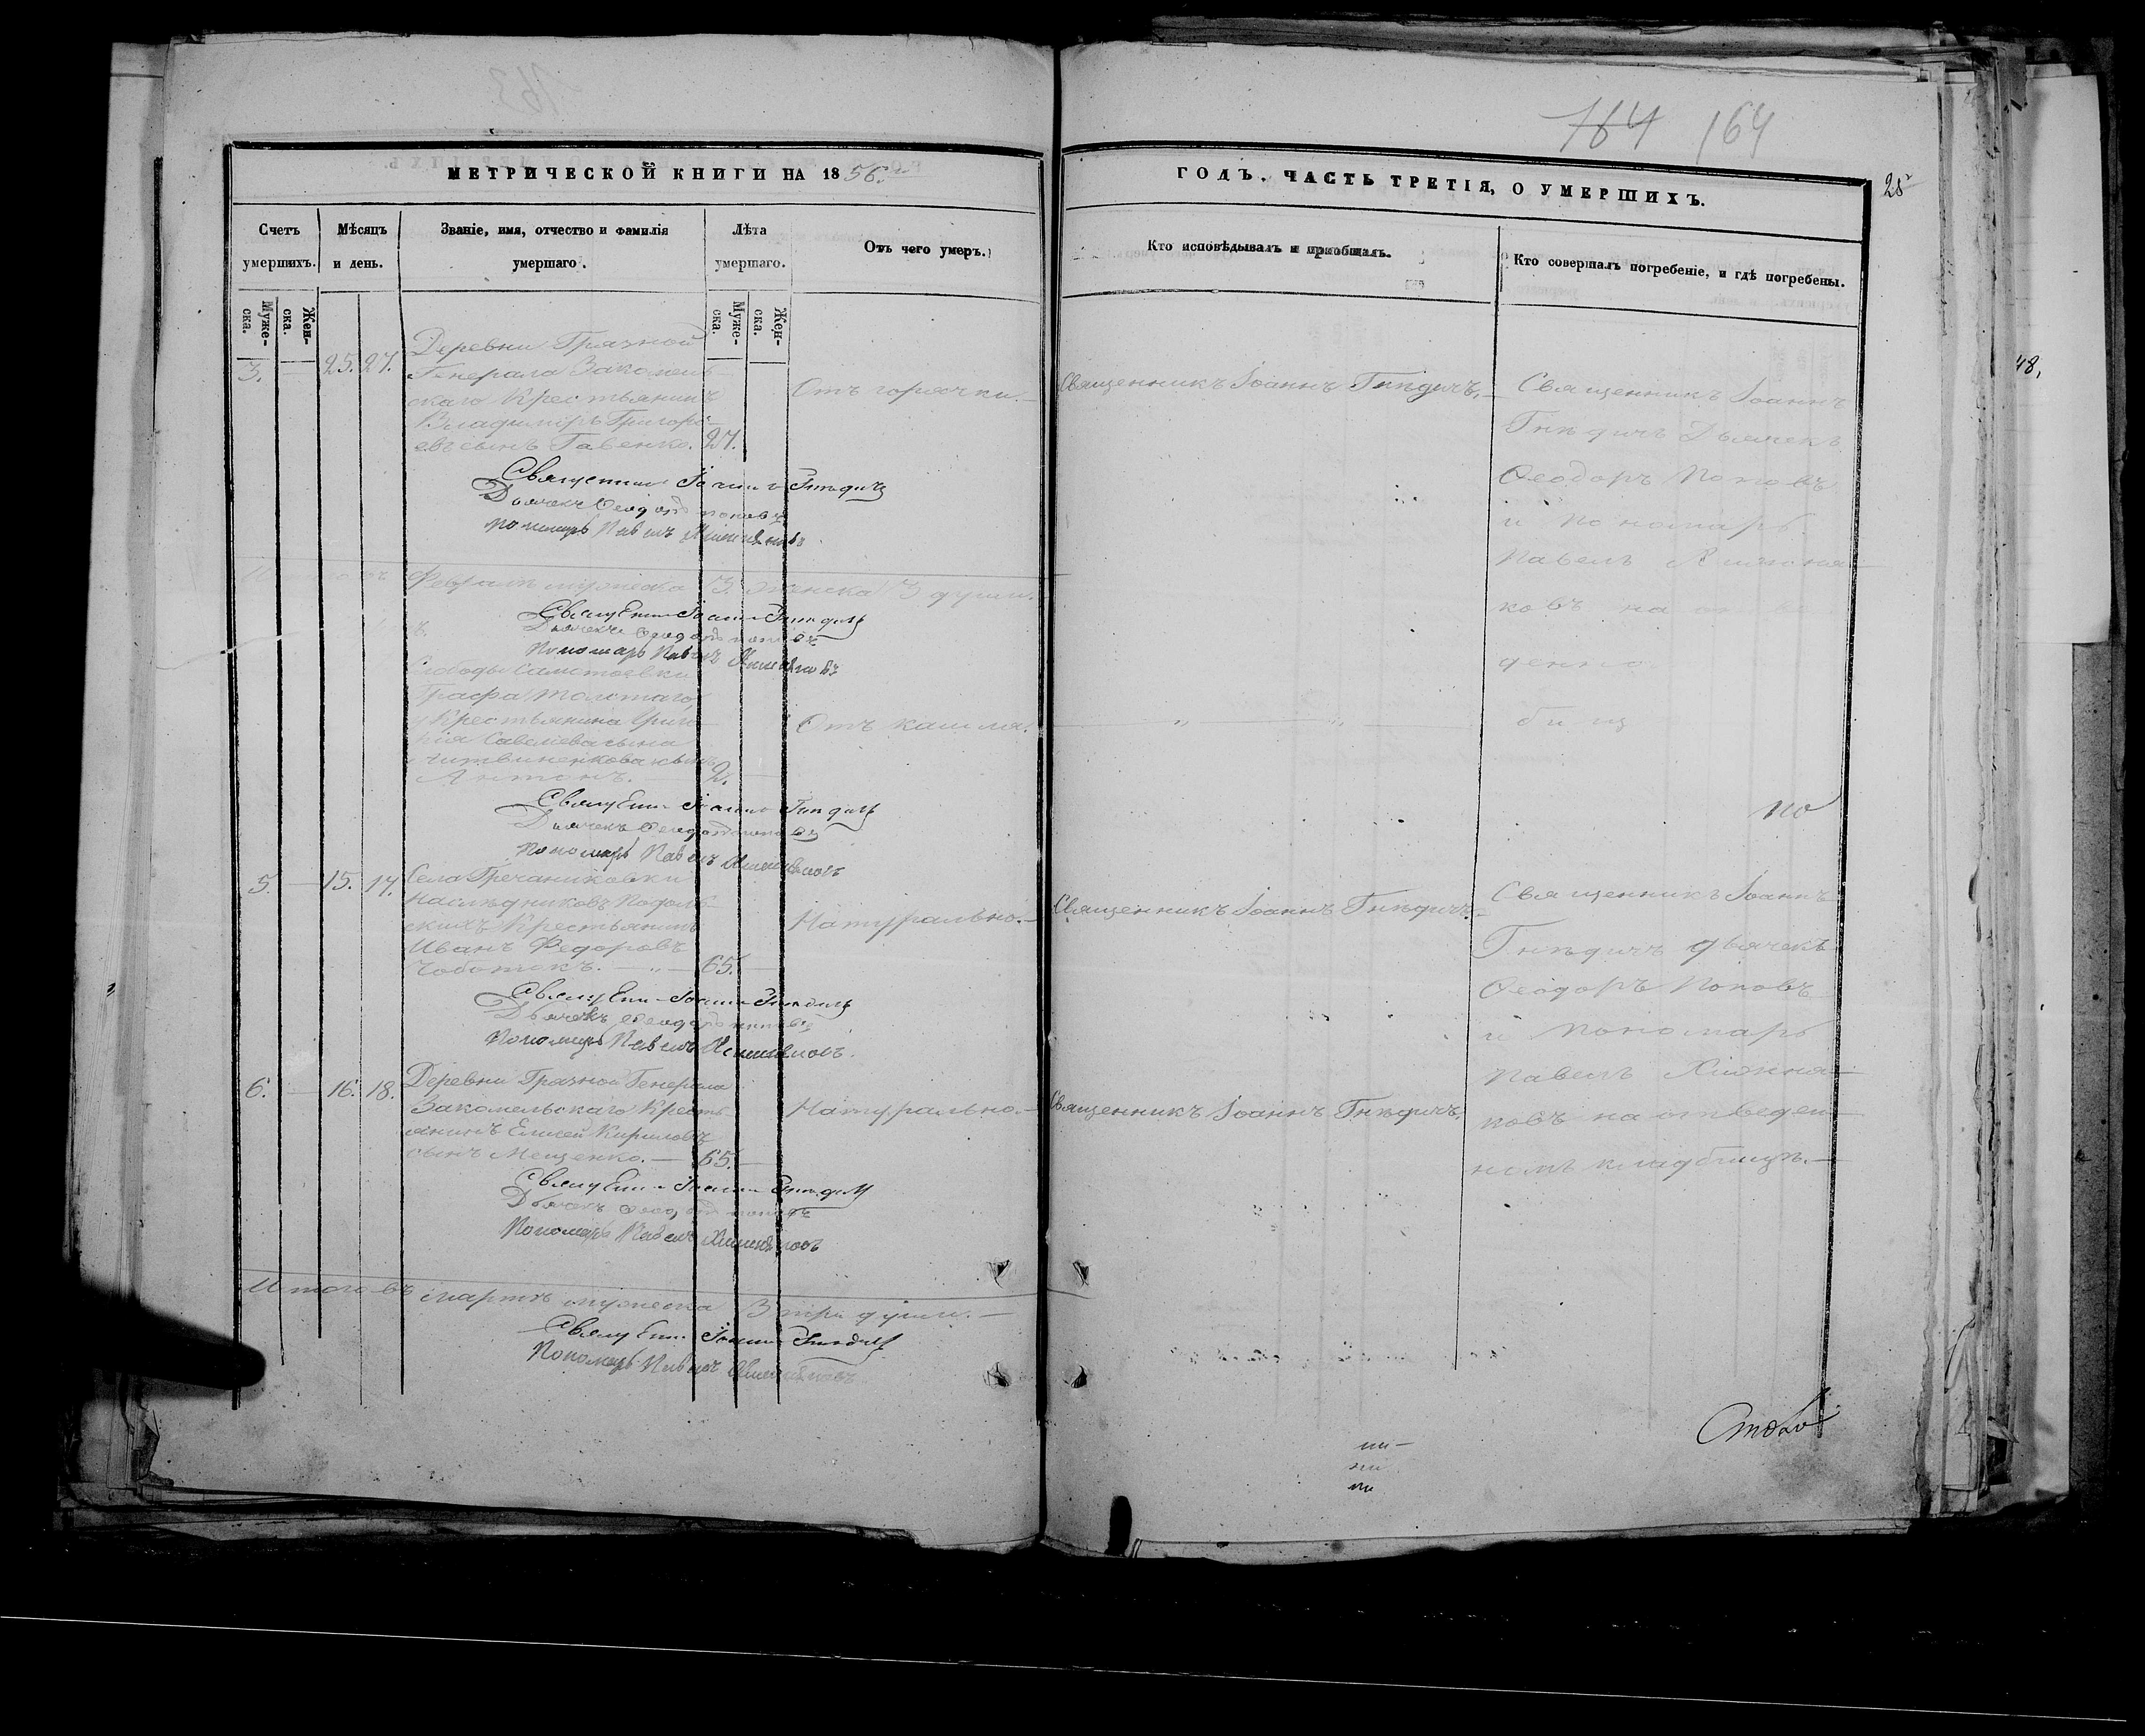 164 164
МЕТРИЧЕСКОЙ КНИГИ НА 1856.
ГОДЪ. ЧАСТЬ ТРЕТІЯ, О УМЕРШИХЪ.
25
Счетъ умершихъ.
Мѣсяцъ и день.
Званіе, имя, отчество и фамилія умершаго.
Лѣта умершаго.
Отъ чего умеръ.
Кто исповѣдывалъ и пріобщалъ.
Кто совершалъ погребеніе, и гдѣ погребены.
Муже-ска.
Жен-ска.
Муже-ска.
Жен-ска.
48,
3. 25. 27.
Деревни Грязной
Генерала Закомель
скаго Крестьянинъ
Владиміръ Григорі
евъ сынъ Гавенко. 27.
Отъ горячки.
Священникъ Іоаннъ Гнѣдичъ.
Священникъ Іоаннъ
Гнѣдичъ Дьячекъ
Ѳеодоръ Поповъ
и Пономарь
Павелъ
ковъ на
Священникъ Іоаннъ Гнѣдичъ
Дьячекъ Ѳеодоръ Поповъ
Пономарь Павелъ
Февралѣ мужеска 3. женска 3 души.
Священникъ Іоаннъ Гнѣдичъ
Дьячекъ Ѳеодоръ Поповъ
Пономарь Павелъ
Слободы Самотоевки
Графа Толстаго,
Крестьянина Григо
рія Савелієва сына
Литвиненкова сынъ
Антонъ. 2.
Отъ кашля.
Священникъ Іоаннъ Гнѣдичъ
Дьячекъ Ѳеодоръ Поповъ
Пономарь Павелъ
по
5. 15. 17.
Села Гречаниковки
Наслѣдниковъ Подоль
скихъ Крестьянинъ
Иванъ Федоровъ
Чоботокъ. 65.
Натурально.
Священникъ Іоаннъ Гнѣдичъ
Священникъ Іоаннъ
Гнѣдичъ дьячекъ
Ѳеодоръ Поповъ
и Пономарь
Павелъ
ковъ на отведен
номъ кладбищѣ.
Священникъ Іоаннъ Гнѣдичъ
Дьячекъ Ѳеодоръ Поповъ
Пономарь Павелъ
6. 16. 18.
Деревни Грязной Генерала
Закомельскаго Кресть
янинъ Елисей Кириловъ
сынъ Мещенко. 65.
Натурально.
Священникъ Іоаннъ Гнѣдичъ.
Священникъ Іоаннъ Гнѣдичъ
Дьячекъ Ѳеодоръ Поповъ
Пономарь Павелъ
Итого въ мартѣ мужеска 3 три души.
Священникъ Іоаннъ Гнѣдичъ
Пономарь Павелъ